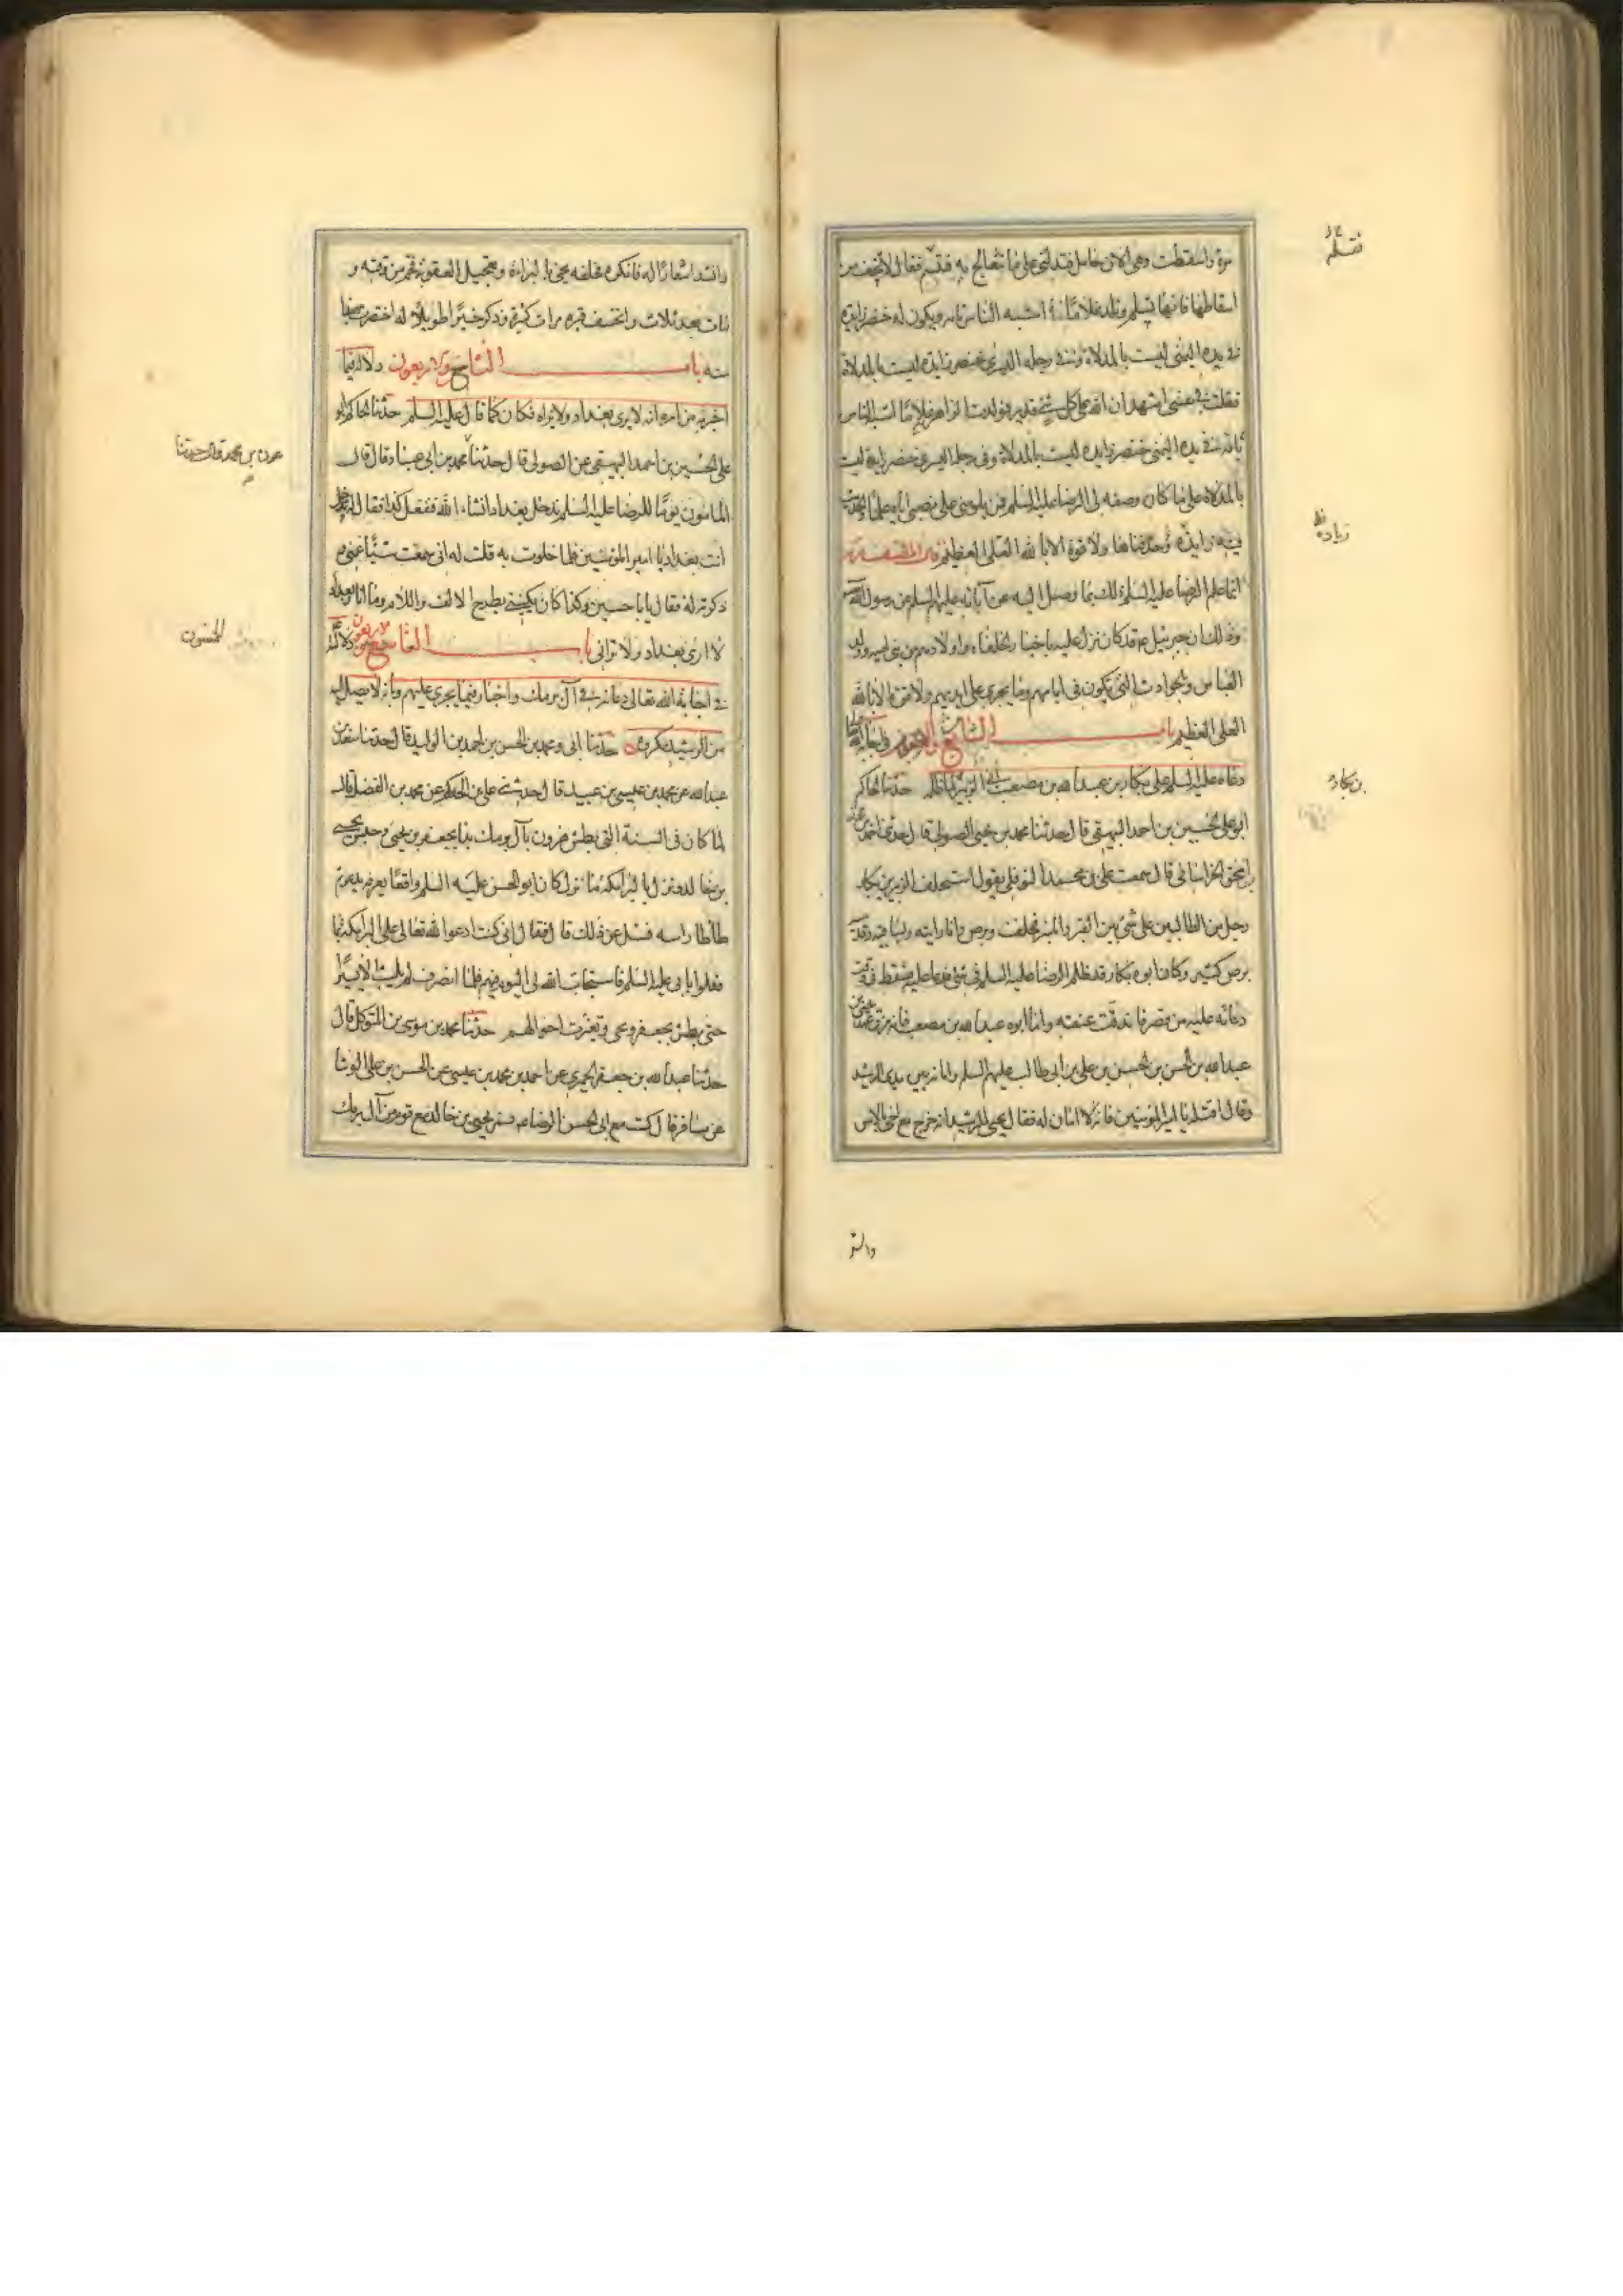 مرة واسقطت وهي الان حامل فتدلني على ما تتعالج به فتسلم فقال لا تخف من
اسقاطها فانها تسلم وتلد غلاما اشبه الناس بامه ويكون له خنصر زايدة
في يده اليمنى ليست بالمدلاة وفي رجله اليسرى خنصر زايدة ليست بالمدلاة
فقلت في نفسي اشهد ان الله على كل شئ قدير فولدت الزاهرية غلاما اشبه الناس
بامه في يده اليمنى خنصر زايدة ليست بالمدلاة وفي رجله اليسرى خنصر زايدة ليست
بالمدلاة على ما كان وصفه لي الرضا عليه السلم فمن يلومني على نصبي اياه علما والحديث
فيه زايدة وحذفناها ولا قوة الا بالله العلي العظيم قال مصنفه
انما علم الرضا عليه السلم ذلك بما وصل اليه عن آبائه عليهم السلم عن رسول الله
وذلك ان جبرئيل ع قد كان نزل عليه باخبار الخلفاء واولادهم من بني امية وولد
العباس وبالحوادث التي تكون في ايامهم وما يجري على ايديهم ولا قوة الا بالله
العلي العظيم باب
دعائه عليه السلم على بكار بن عبد الله بن مصعب بن الزبير لما ظلمه حدثنا الحاكم
ابو علي الحسين بن احمد البيهقي قال حدثنا محمد بن يحيى الصولي قال حدثنا احمد بن محمد
بن اسحق الخراساني قال سمعت علي بن محمد النوفلي يقول استحلف الزبير بن بكار
رجل من الطالبين على شئ بين القبر والمنبر فحلف وبرص وانا رايته وبساقيه وقدميه
برص كثير وكان ابوه بكار قد ظلم الرضا عليه السلم في شئ فدعا عليه فسقط في وقت
دعائه عليه من قصر فاندقت عنقه واما ابوه عبد الله بن مصعب فانه مزق عهد يحيى بن
عبد الله بن الحسن بن الحسن بن علي بن ابي طالب عليهم السلم وامانه بين يدي الرشيد
وقال اقتله يا امير المؤمنين فانه لا امان له فقال يحيى للرشيد انه خرج مع اخي بالامس
فتسلم
زياده
بن بكار
وانشد
وانشد اشعارا له فانكره فحلفه يحيى بالبراءة وتعجيل العقوبة فحم من وقته و
مات بعد ثلاث وانخسف قبره مرات كثيرة وذكر خبرا طويلا له اختصرت هذا
منه باب الثامن والاربعون دلالته فيما
اخبر به من امره انه لا يرى بغداد ولا يراه فكان كما قال عليه السلم حدثنا الحاكم ابو
علي الحسين بن احمد البيهقي عن الصولي قال حدثنا محمد بن ابي عباد قال قال
المامون يوما للرضا عليه السلم ندخل بغداد انشاء الله فنفعل كذا فقال له تدخل
انت بغداد يا امير المؤمنين فلما خلوت به قلت له اني سمعت شيئا غمني و
ذكرته له فقال يا با حسين وكذا كان يكنيني بطرح الالف واللام وما انا وبغداد
لا ارى بغداد ولا تراني باب التاسع والاربعون دلالته
في اجابة الله تعالى دعائه في آل برمك واخباره فيما يجري عليهم وبانه لا يصل اليه
من الرشيد مكروه حدثنا ابي ومحمد بن الحسن بن احمد بن الوليد قال حدثنا سعد بن
عبد الله عن محمد بن عيسى بن عبيد قال حدثني علي بن الحكم عن محمد بن الفضل قال
لما كان في السنة التي بطش هرون بآل برمك بدا بجعفر بن يحيى وحبس يحيى
بن خالد ونزل بالبرامكة ما نزل كان ابو الحسن عليه السلم واقفا بعرفة يدعو ثم
طاطا راسه فسئل عن ذلك قال فقال اني كنت ادعوا الله تعالى على البرامكة بما
فعلوا بابي عليه السلم فاستجاب الله لي اليوم فيهم فلما انصرف لم يلبث الا يسيرا
حتى بطش بجعفر ويحيى وتغيرت احوالهم حدثنا محمد بن موسى بن المتوكل قال
حدثنا عبد الله بن جعفر الحميري عن احمد بن محمد بن عيسى عن الحسن بن علي الوشا
عن مسافر قال كنت مع ابي الحسن الرضا بمنى فمر يحيى بن خالد مع قوم من آل برمك
عون بن محمد قال حدثنا